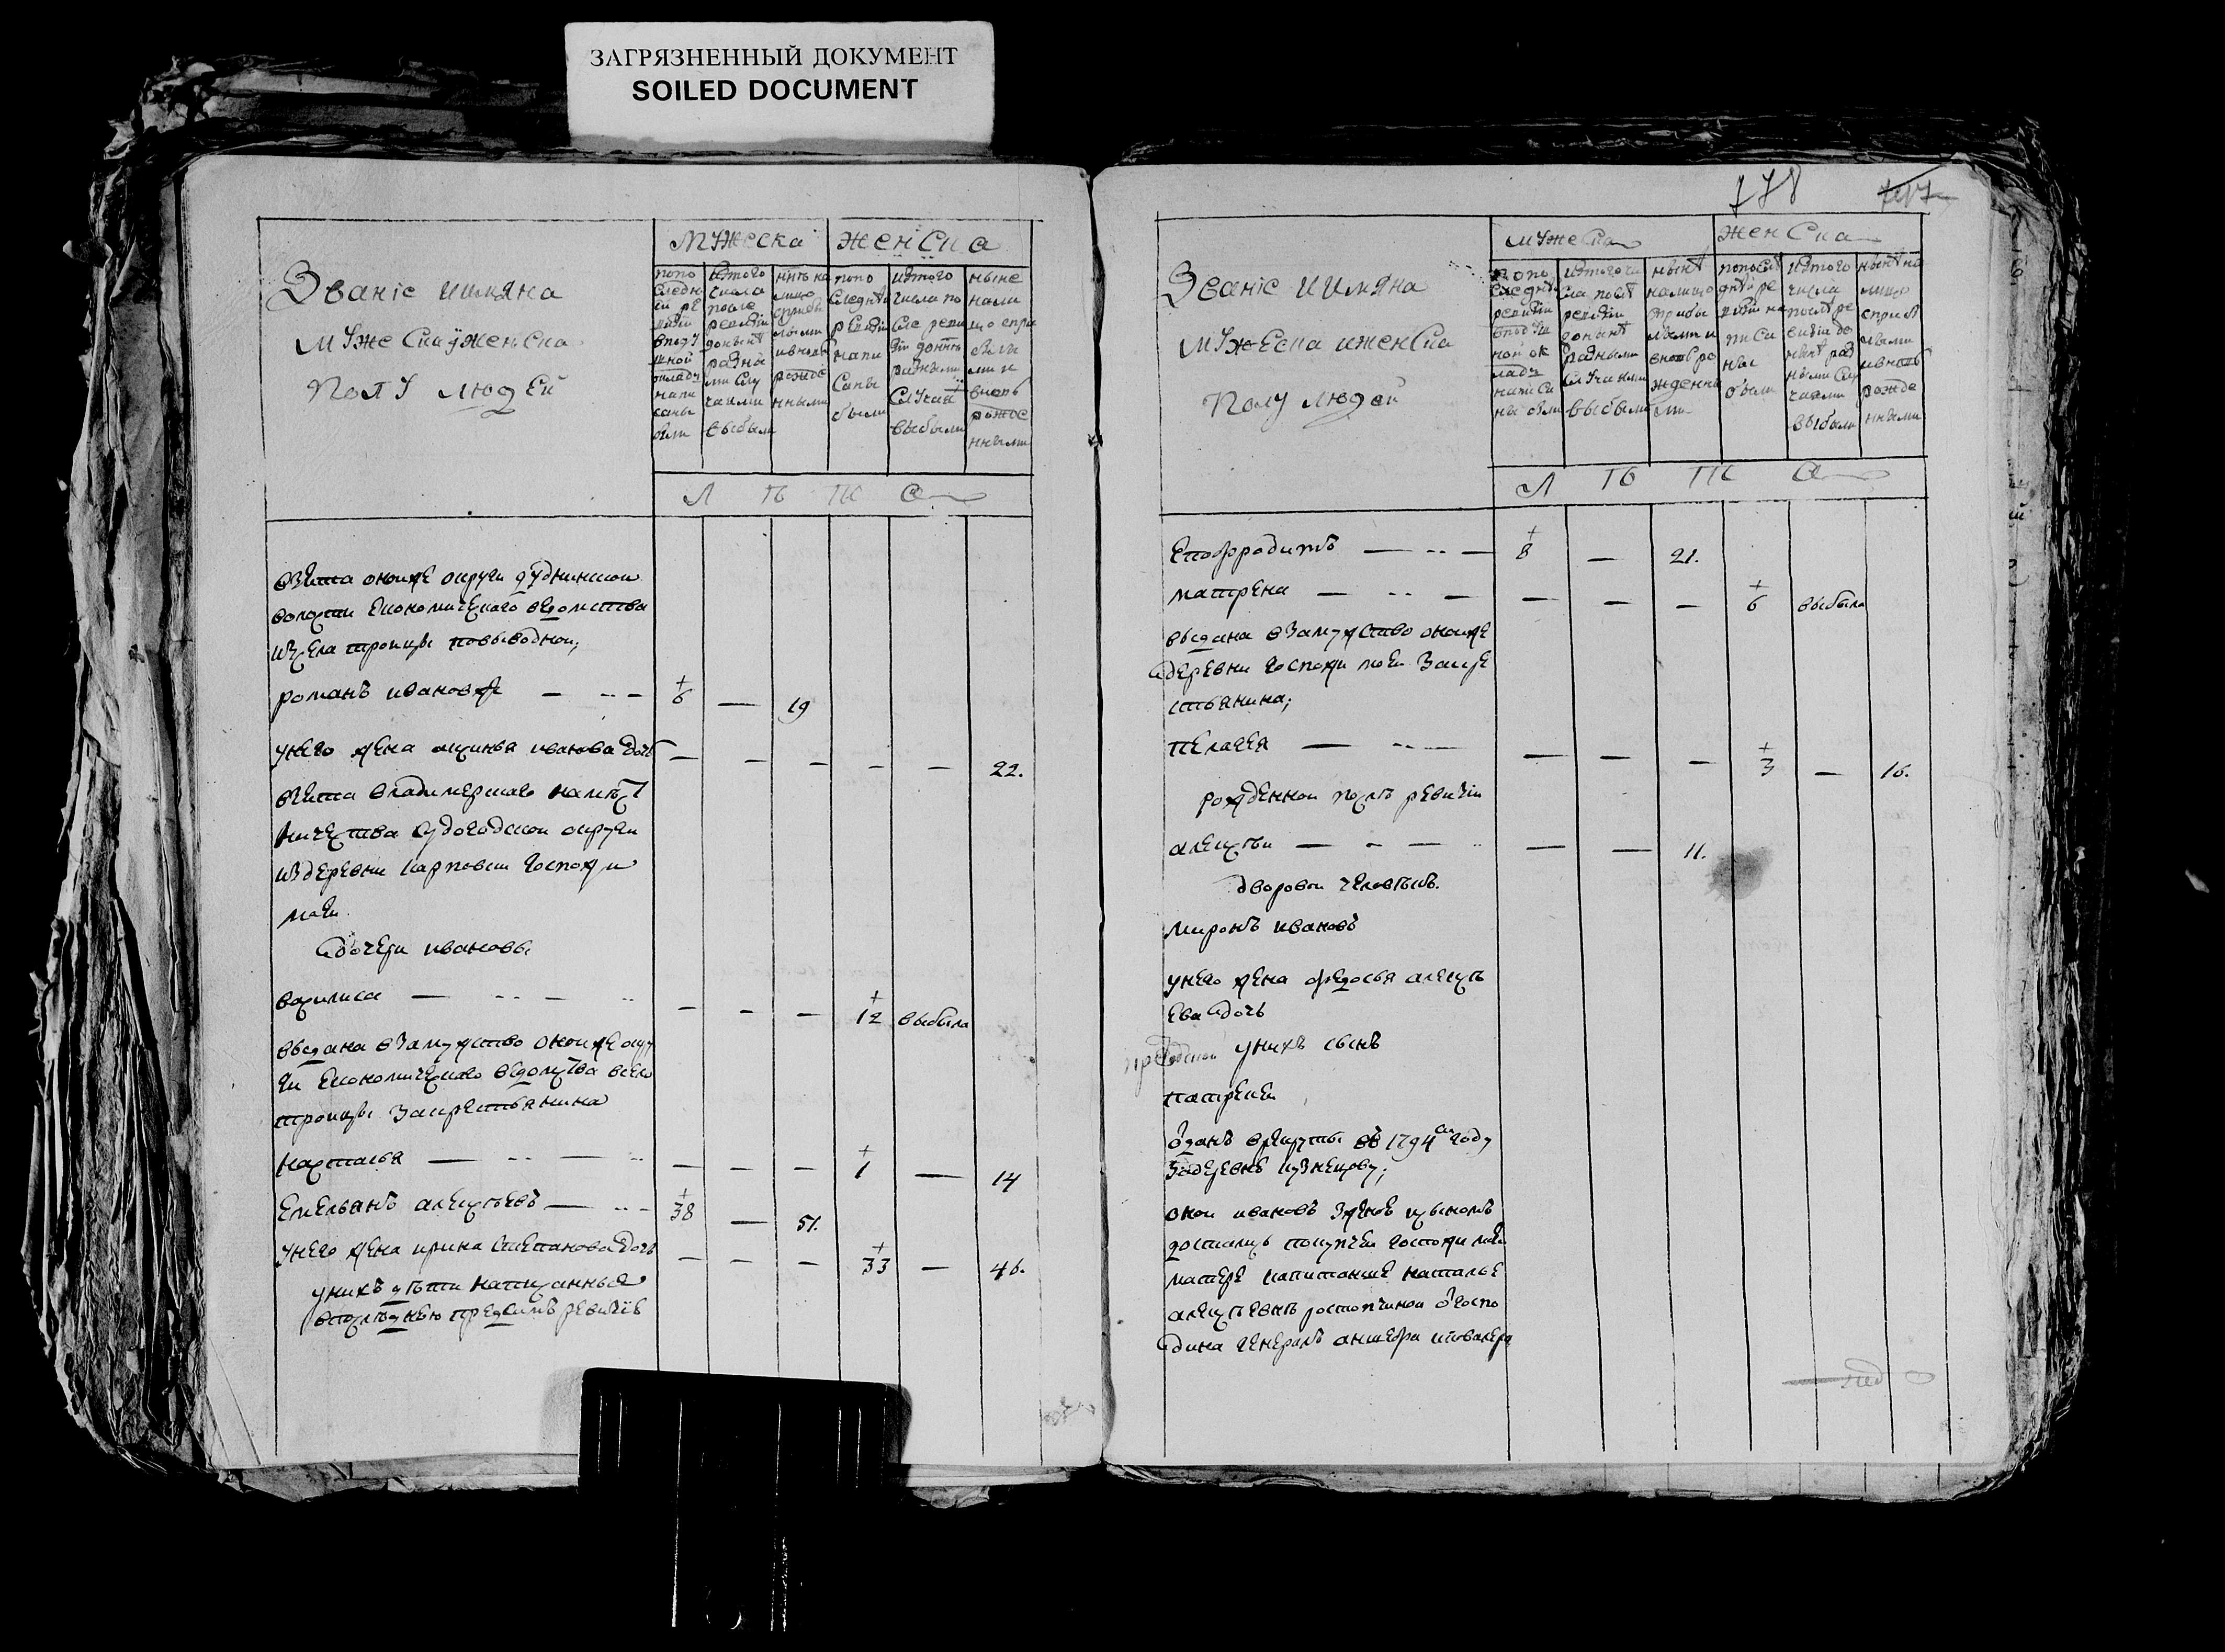 ЗАГРЯЗНЕННЫЙ ДОКУМЕНТ
SOILED DOCUMENT
Званіе иимяна
мужеска уженска
полу людей
мужеска
женска
попо
следн
ей ре
визіи
вподу
шной
окладъ
напи
саны
были
изтого
числа
после
ревизіи
донынѣ
разны
ми слу
чаями
выбыли
нынѣ на
лицо
сприбы
лыми
ивновь
рожде
нными
попо
следнѣй
ревизіи
напи
саны
были
изтого
числа по
сле реви
зіи донынѣ
разными
случаи
выбыли
ныне
нали
цо спри
былы
ми и
вновь
рожде
нными
Л ѣ т а
взята оноиже округи дуднинскои
волости економическаго ведомства
изсела троицы повыводнои;
романъ ивановже — .. — + 6 — 19
унего жена аксинья иванова дочь — — — — — 22.
взята владимерскаго намѣст
ничества судогодской округи
издеревни карповки госпожи
моеи
дочери ивановы
василиса — .. — .. — — — + 12 выбыла
выдана взамужство оноиже окру
ги економическаго ведомства всело
троицы закрестьянина
настасья — .. — .. — — — + 1 — 14
Емельянъ алексѣевъ — .. — + 38 — 51.
унего жена ирина степанова дочь — — — + 33 — 46.
унихъ дѣти написанныя
впослѣднею предсимъ ревизіе
778
717
Званіе иимяна
мужеска иженска
полу людей
мужеска
женска
попо
следнѣ
ревизіи
вподуш
ной ок
ладъ
написа
ны были
изтого чи
сла послѣ
ревизіи
донынѣ
разными
случаями
выбыли
нынѣ
налицо
сприбы
лыми и
вновь ро
жденны
ми
попослѣ
дней ре
визіи на
писа
ны
были
изтого
числа
послѣ ре
визіи до
нынѣ раз
ными слу
чаями
выбыли
нынѣ на
лицо
сприб
ылыми
ивновь
рожде
нными
Л ѣ т а
Епофродитъ — .. — + 8 — 21.
матрена — .. — — — — + 6 выбыла
выдана взамужство оноиже
деревни госпожи моеи закре
стьянина;
пелагея — .. — — — — + 3 — 16.
рожденнои послѣ ревизіи
алексѣи — - — .. — — 11.
дворовои человѣкъ.
миронъ ивановъ
унего жена федосья алексѣ
ева дочь
унихъ сынъ
патрекеи
отданъ врекруты въ 1794 году
задеревню кузнецову;
онои ивановъ зженою исыномъ
достались покупкеи госпожи моеи
матере капитанше наталье
алексѣевнѣ ростопчинои отгоспо
дина генералъ аншефа икавалера